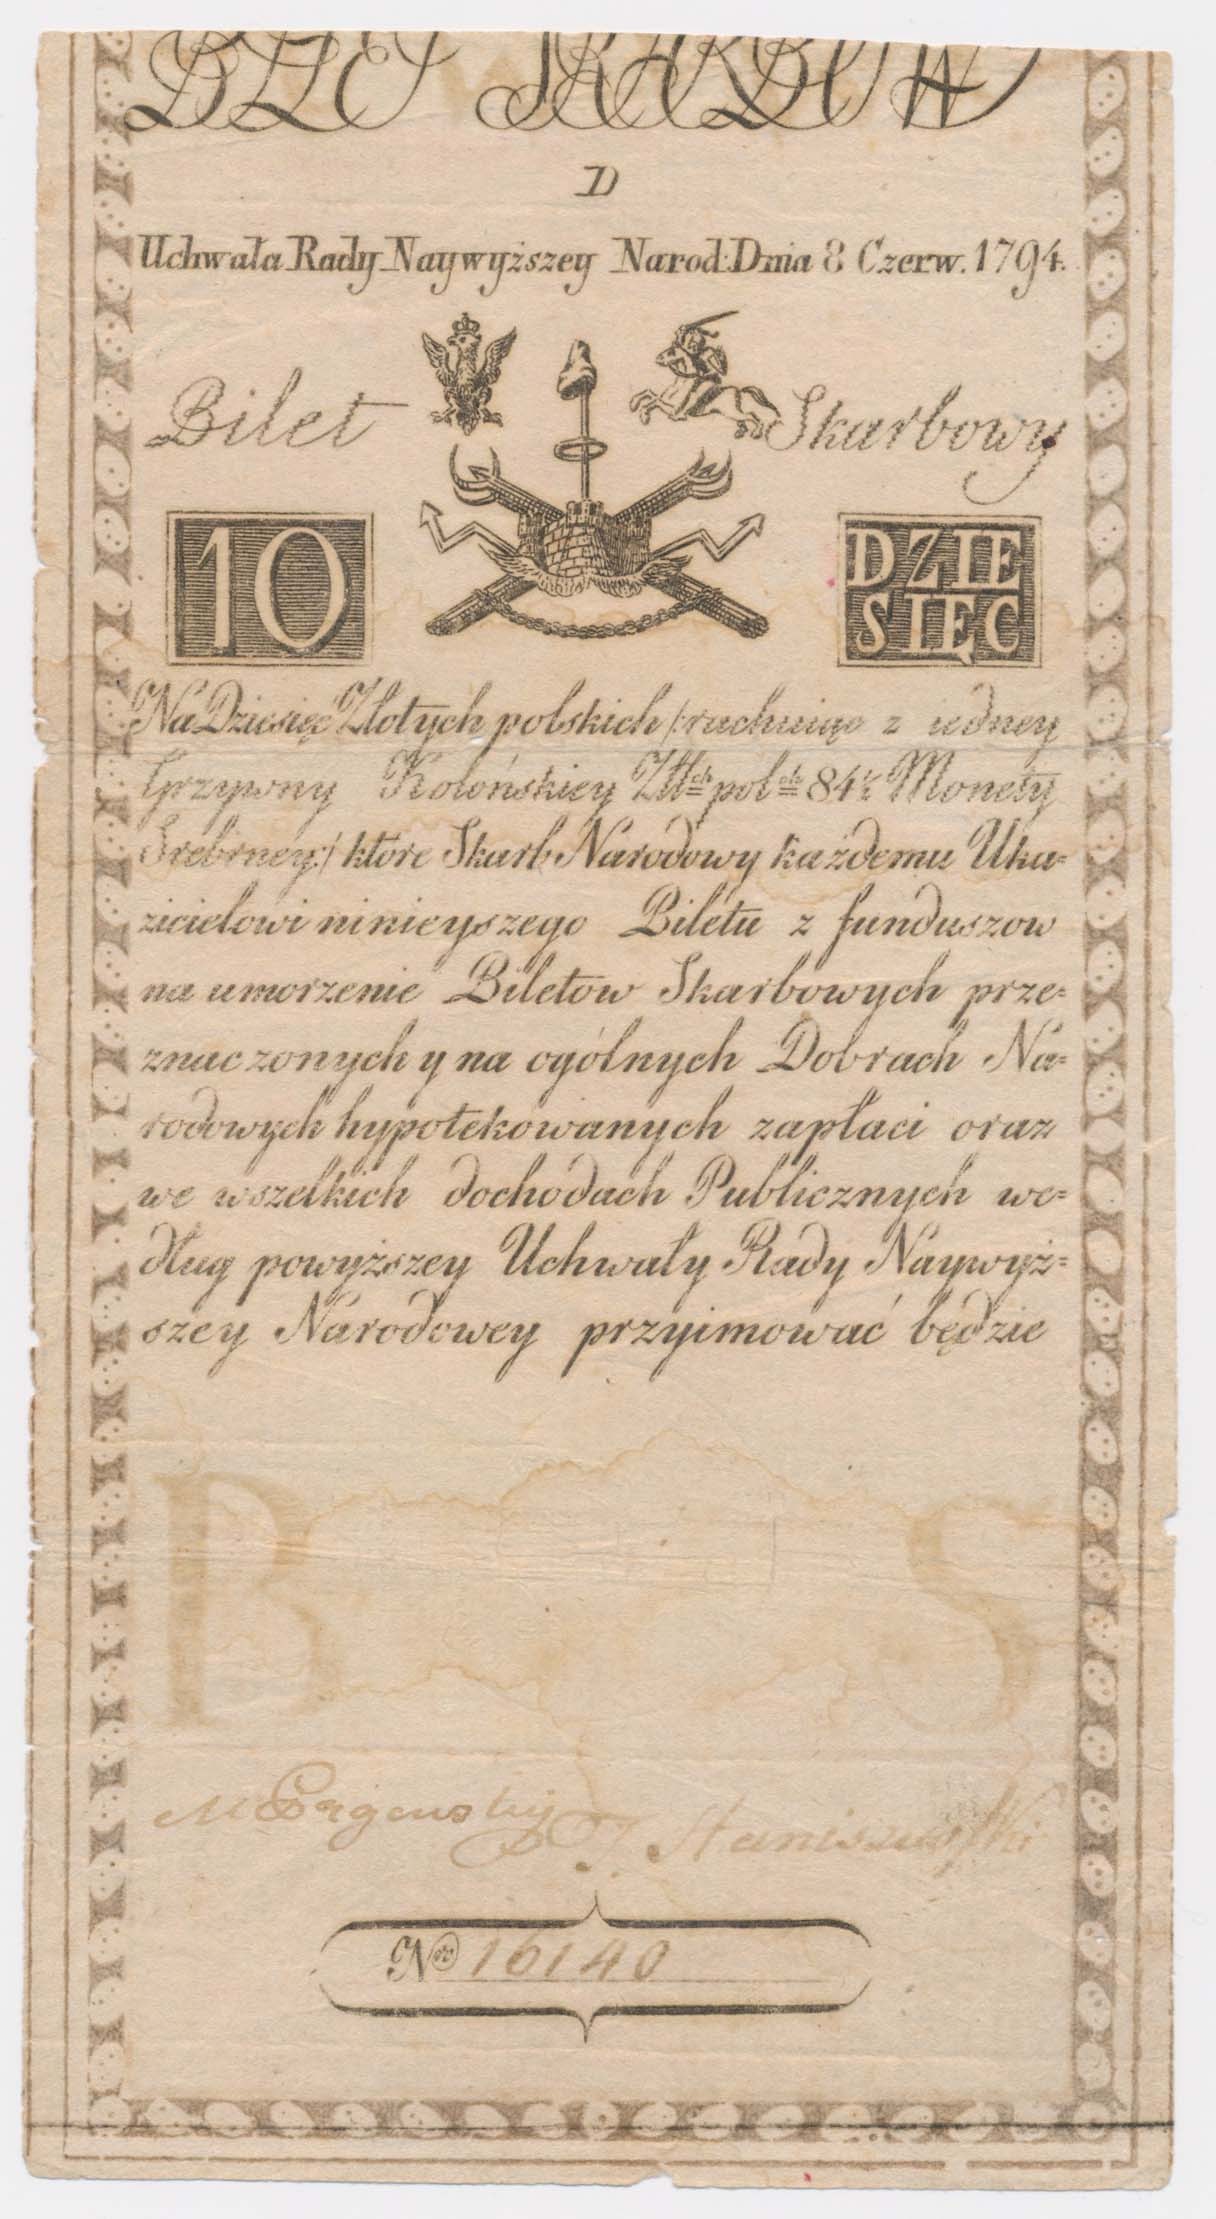 BILET SKARBOWY
D
Uchwała Rady Naywyższey Narod: Dnia 8 Czerw. 1794.
Bilet Skarbowy
10
DZIE
SIĘC
Na Dziesięć Złotych polskich /: rachuiąc z iedney
Grzywny Kolońskiey Złł ch pol ch 84½ Monety
Srebrney :/ które Skarb Narodowy każdemu Uka=
zicielowi ninieyszego Biletu z funduszow
na umorzenie Biletow Skarbowych prze=
znaczonych y na ogólnych Dobrach Na=
rodowych hypotekowanych zapłaci oraz
we wszelkich dochodach Publicznych we=
dług powyższey Uchwały Rady Naywyż=
szey Narodowey przyimować będzie
B S
M
J Staniszewski
Nro 16140